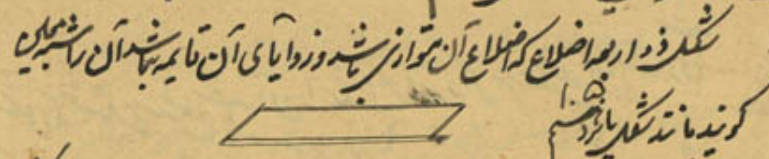 شکل ذو اربعه اضلاع که اضلاع آن متوازی باشد و زوایای آن قایمه نباشد آن را شبیه بمعین
کویند مانند شکل پانزدهم ۱۵